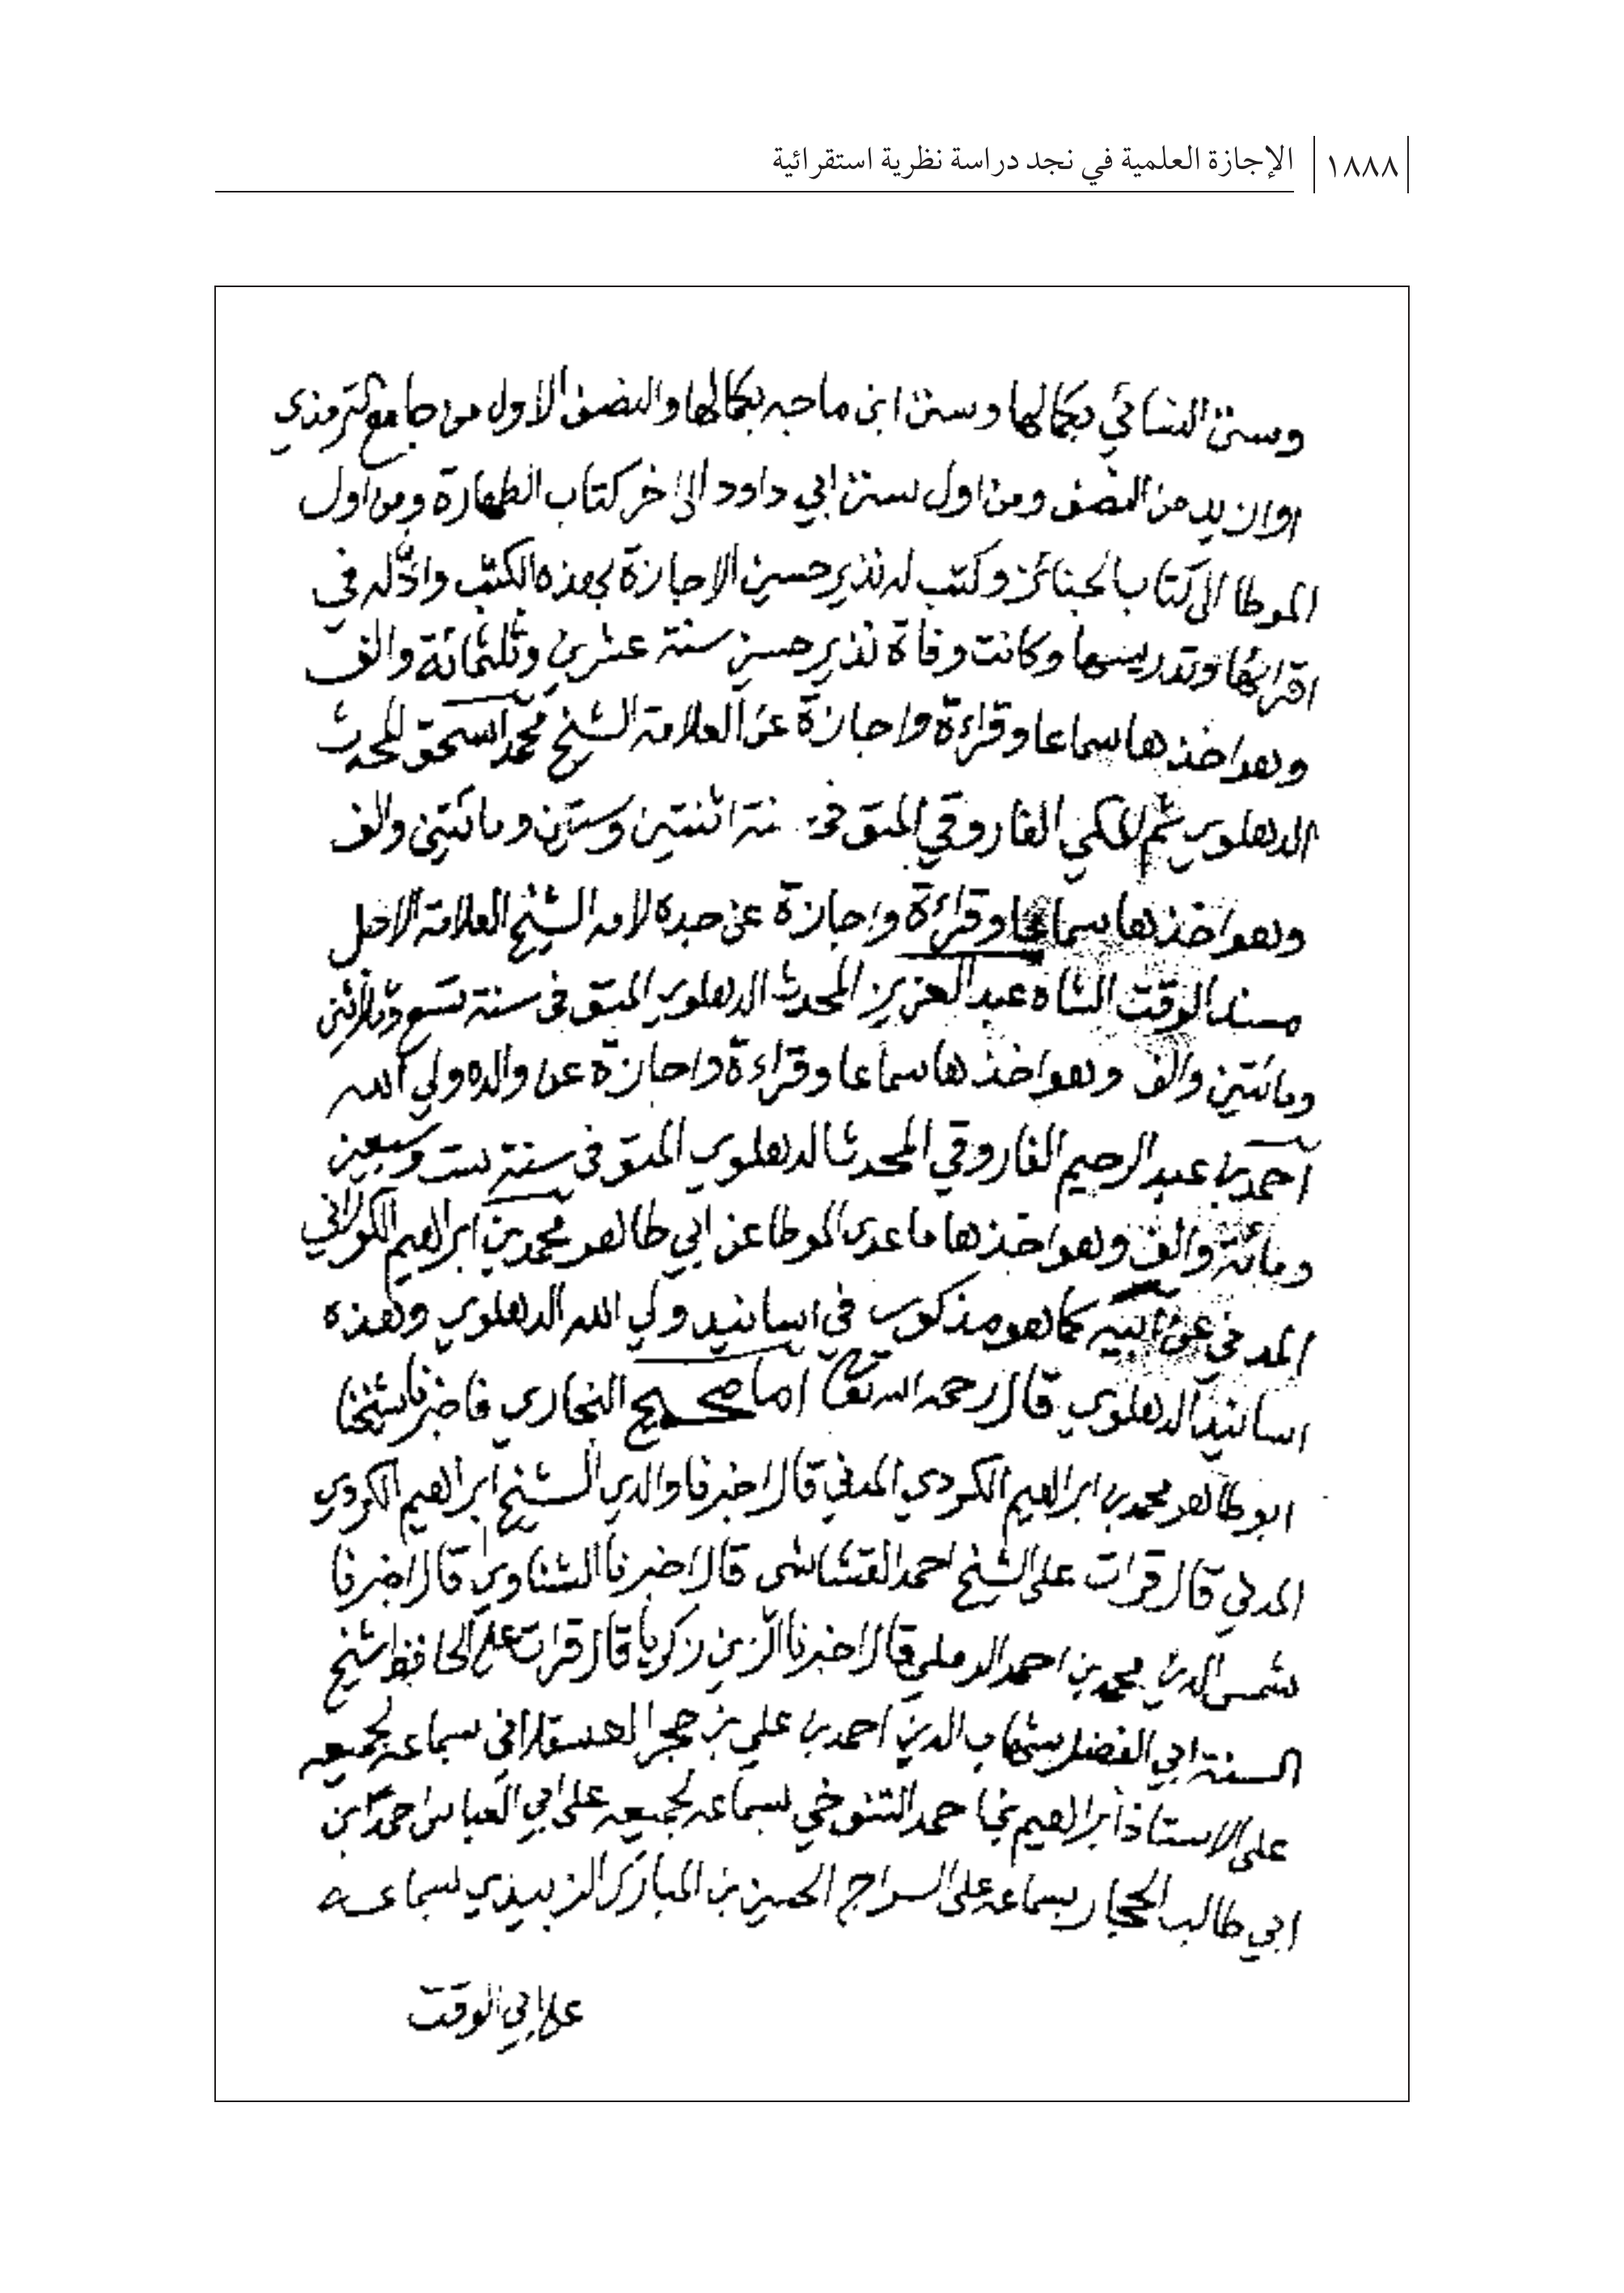 ١٨٨٨ الإجازة العلمية في نجد دراسة نظرية استقرائية
وسنن النسائي بكمالها وسنن ابن ماجه بكمالها والنصف الاول من جامع الترمذي
او ازيد من النصف ومن اول سنن ابي داود الى اخر كتاب الطهارة ومن اول
الموطا الى كتاب الجنائز وكتب له نذير حسين الاجازة لهذه الكتب واذن له في
اقرائها وتدريسها وكانت وفاة نذير حسين سنة عشرين وثلثمائة والف
وهو اخذها سماعا وقراءة واجازة عن العلامة الشيخ محمد اسحق المحدث
الدهلوي ثم المكي الفاروقي المتوفى سنة اثنتين وستين ومائتين والف
وهو اخذها سماعا وقراءة واجازة عن جده لامه الشيخ العلامة الاجل
مسند الوقت الشاه عبد العزيز المحدث الدهلوي المتوفى سنة تسع وثلاثين
ومائتين والف وهو اخذها سماعا وقراءة واجازة عن والده ولي الله
احمد بن عبد الرحيم الفاروقي المحدث الدهلوي المتوفى سنة ست وسبعين
ومائة والف وهو اخذها ما عدى الموطا عن ابي طاهر محمد بن ابراهيم الكوراني
المدني عن ابيه كما هو مذكور في اسانيد ولي الله الدهلوي وهذه
اسانيد الدهلوي قال رحمه الله تعالى اما صحيح البخاري فاخبرنا شيخنا
ابو طاهر محمد بن ابراهيم الكردي المدني قال اخبرنا والدي الشيخ ابراهيم الكردي
المدني قال قرات على الشيخ احمد القشاشي قال اخبرنا الشناوي قال اخبرنا
شمس الدين محمد بن احمد الرملي قال اخبرنا الزين زكريا قال قرات على الحافظ شيخ
السنة ابي الفضل شهاب الدين احمد بن علي بن حجر العسقلاني سماعه لجميعه
على الاستاذ ابراهيم بن احمد التنوخي بسماعه لجميعه على ابي العباس احمد بن
ابي طالب الحجار بسماعه على السراج الحسين بن المبارك الزبيدي بسماعه
على ابي الوقت